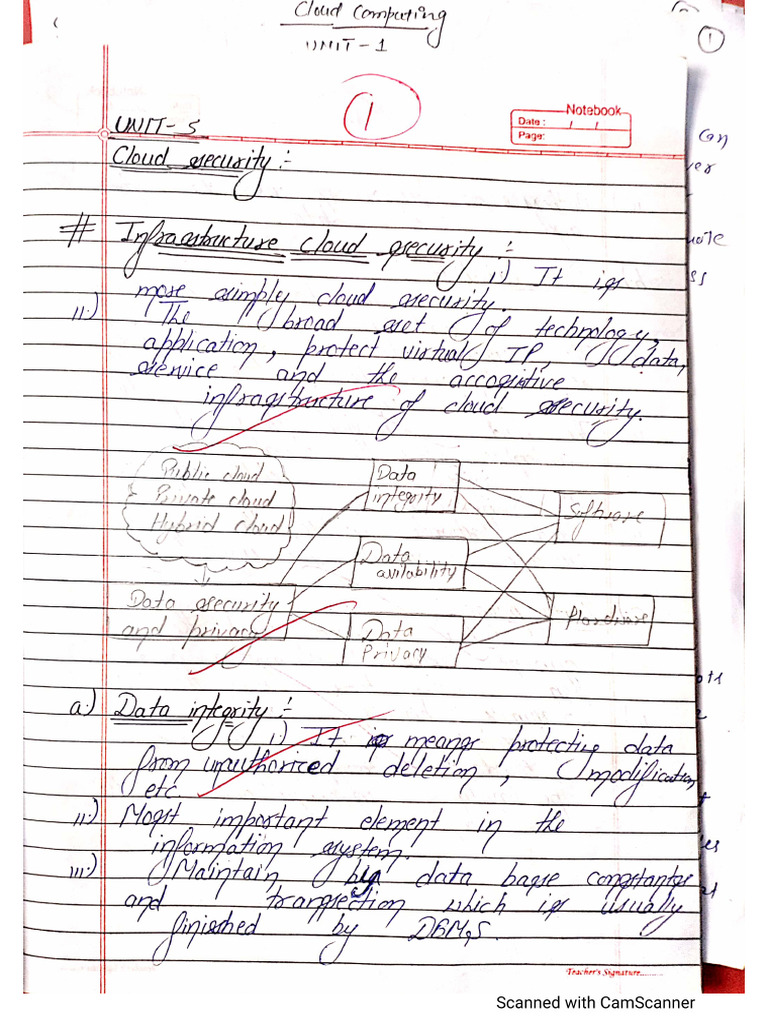 Cloud Computing
UNIT-1
1
1
Notebook
Date : / /
Page:
UNIT-5
Cloud security :-
# Infrastructure cloud security :-
i.) It is
more simply cloud security.
ii.) The broad set of technology,
application, protect virtual IP, data,
service and the
infrastructure of cloud security.
Public cloud
Private cloud
Hybrid cloud
Data security
and privacy
Data
integrity
Data
avilability
Data
Privacy
Software
Hardware
a.) Data integrity :-
i.) It means protecting data
from unauthorized deletion, modification,
etc.
ii.) Most important element in the
information system.
iii.) Maintain by data base constants
and transection which is usually
finished by DBMS.
Teacher's Signature..........
Can
note
ss
Scanned with CamScanner